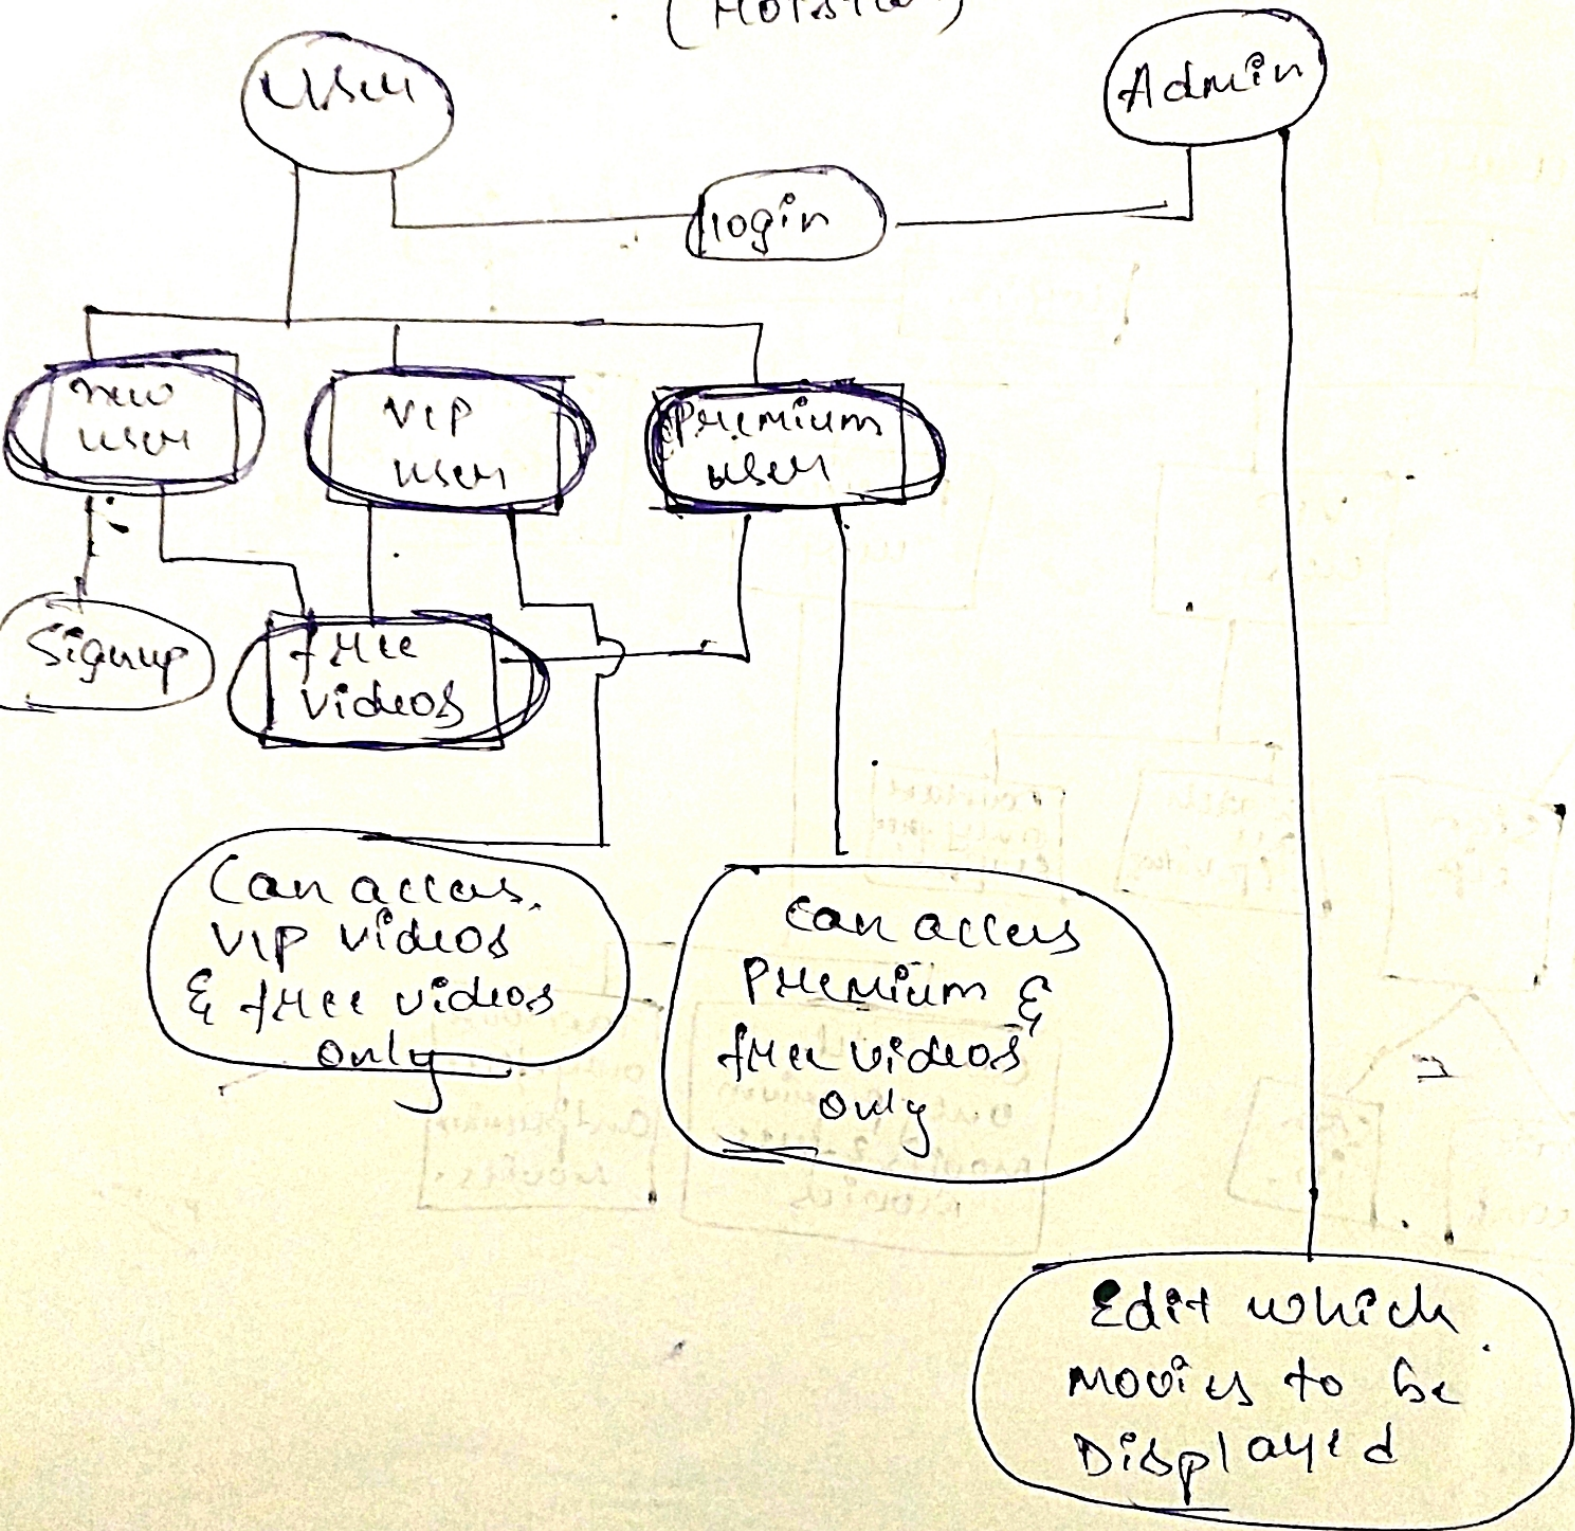 (Hotstar)
User
Admin
login
new
user
VIP
user
Premium
user
Signup
free
videos
Can access
VIP videos
& free videos
only
Can access
Premium &
free videos
only
Edit which
Movies to be
Displayed